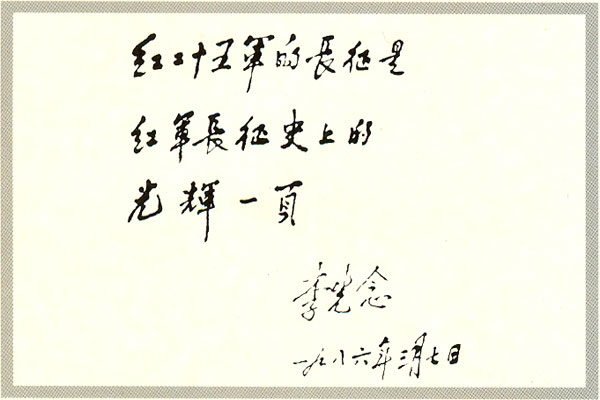 红二十五軍的長征是
红軍長征史上的
光輝一頁
李先念
一九八六年三月七日